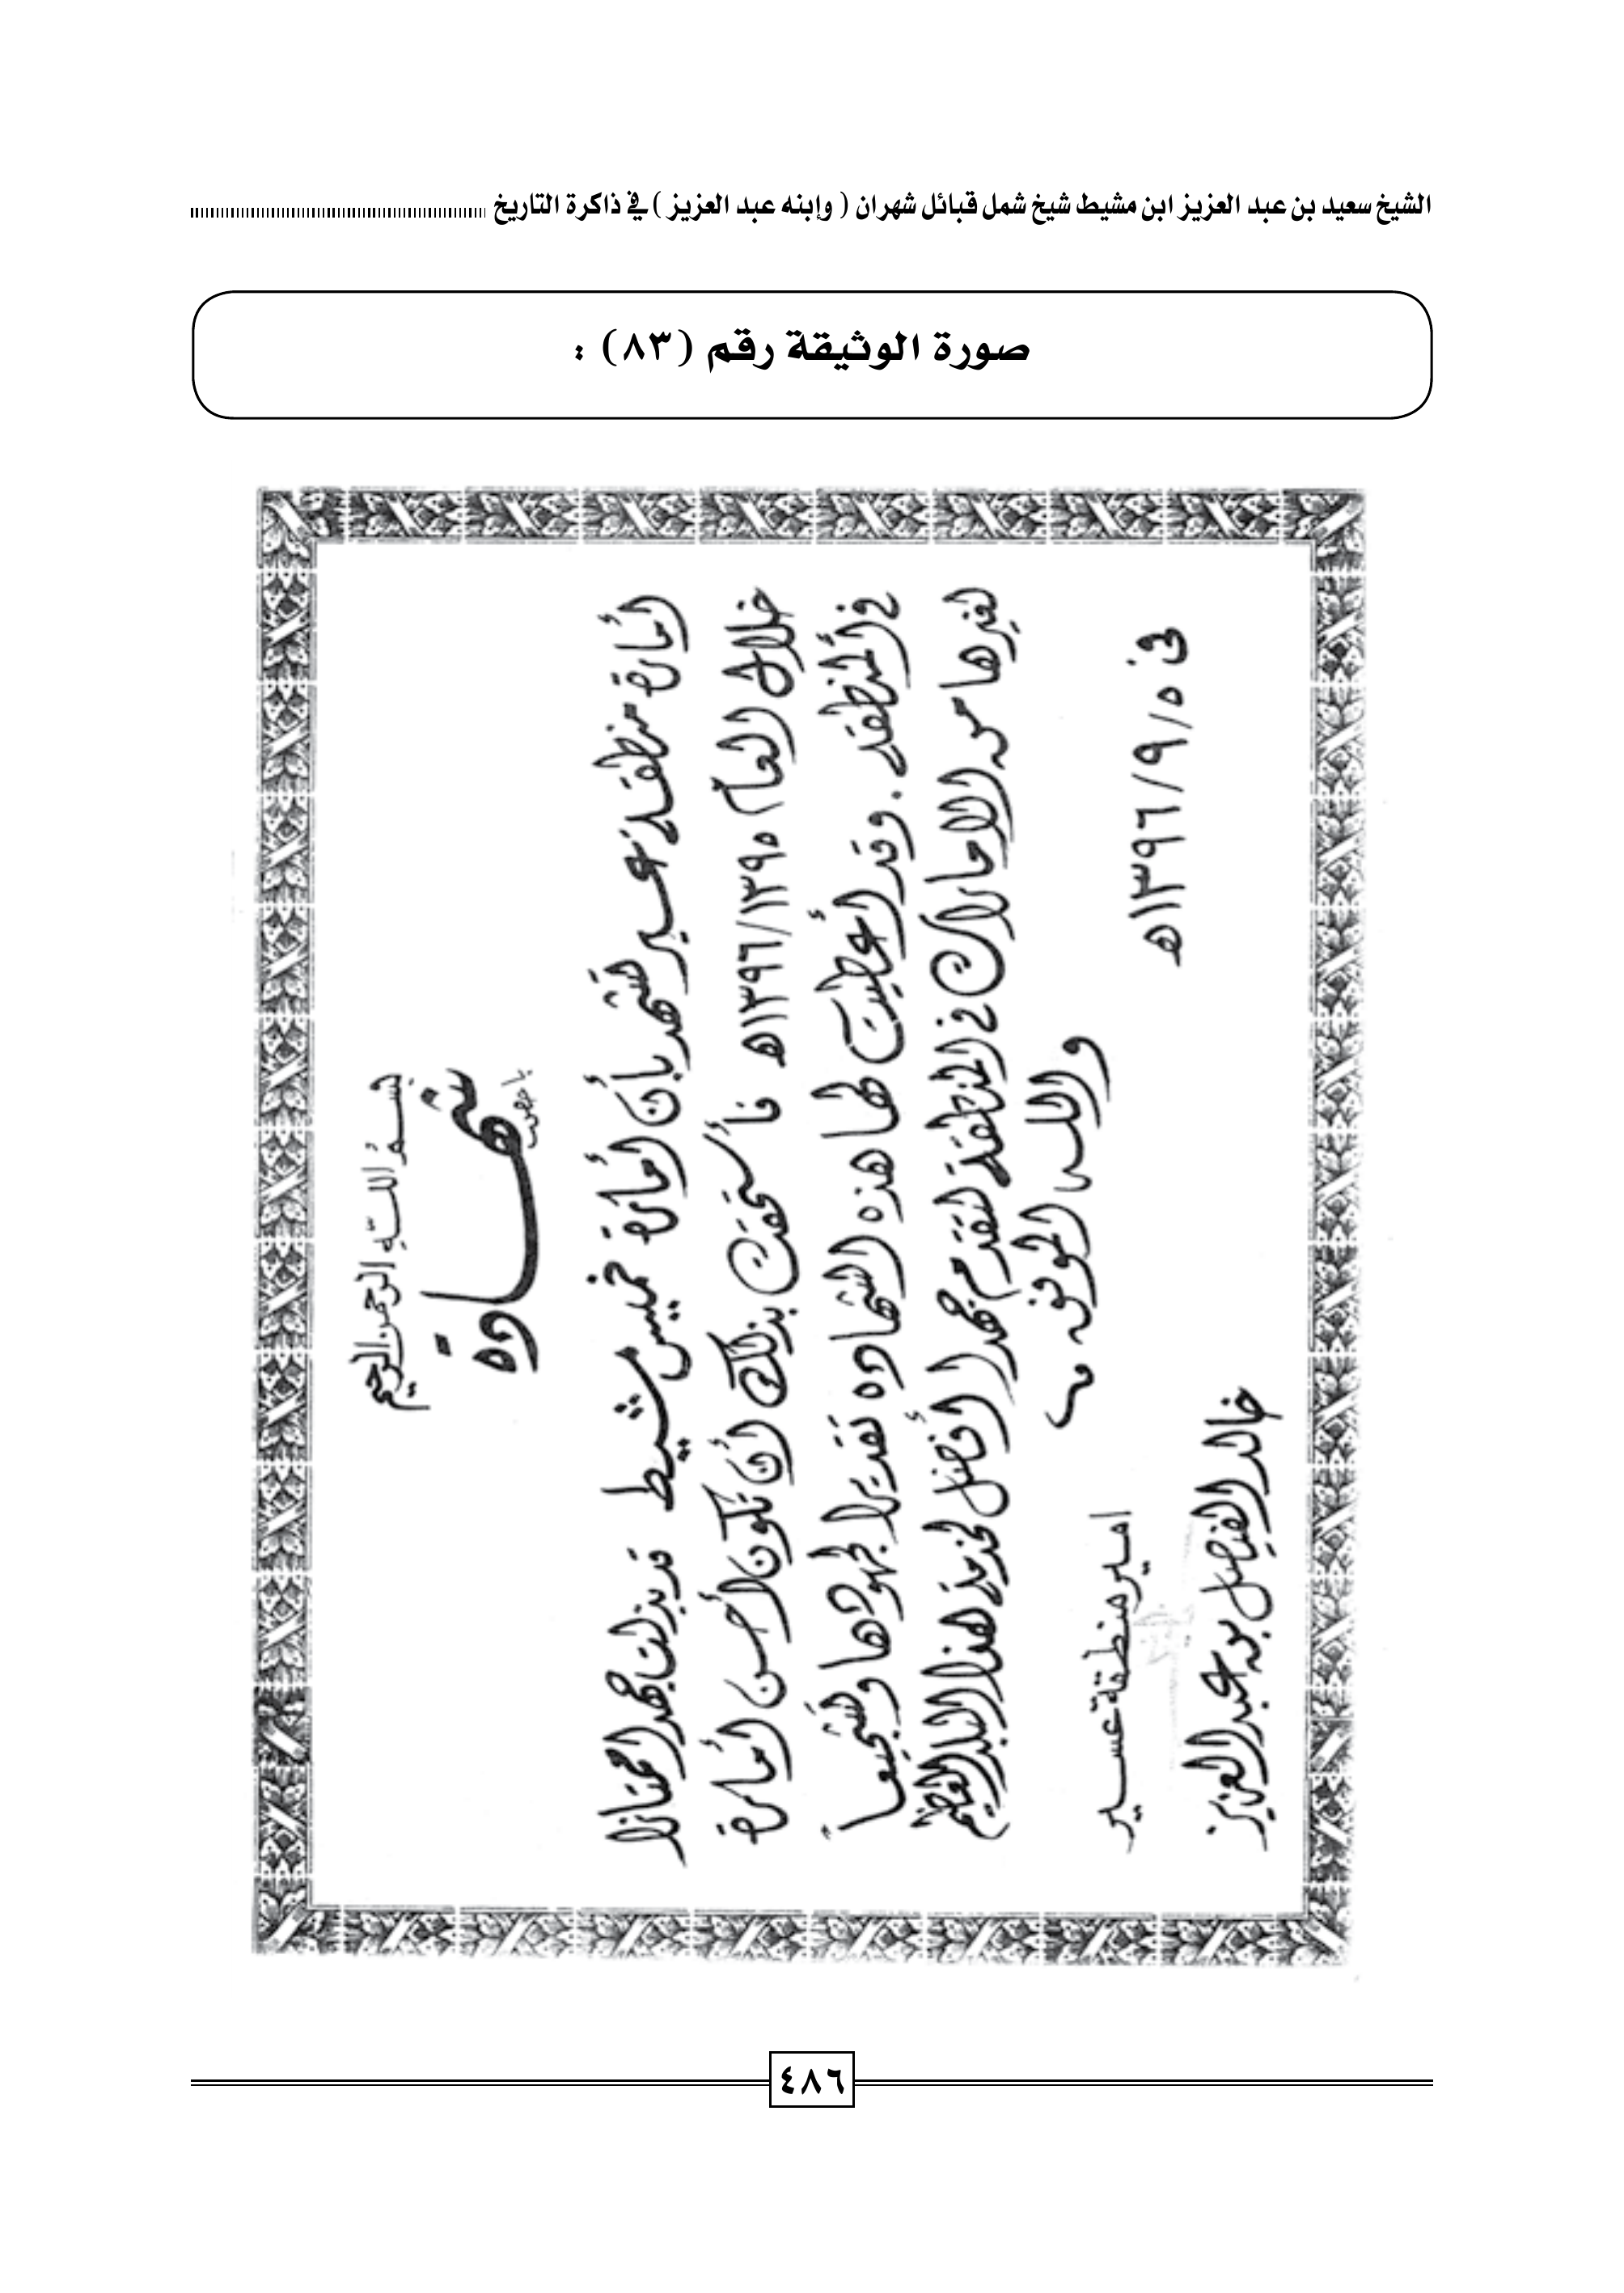 الشيخ سعيد بن عبد العزيز ابن مشيط شيخ شمل قبائل شهران ( وإبنه عبد العزيز ) في ذاكرة التاريخ
صورة الوثيقة رقم (٨٣) :
بسم الله الرحمن الرحيم
شهادة
أمارة منطقة عسير تشهد بأن أمارة خميس مشيط قد بذلت جهدا ممتازا
خلال العام ١٣٩٦/١٣٩٥هـ فأستحقت بذلك أن تكون أحسن أمارة
في المنطقة . وقد أعطيت لها هذه الشهاده تقديرا لجهودها وتشجيعاً
لغيرها من الامارات في المنطقة لتقدم جهدا أفضل لخدمة هذا البلد العظيم
والله الموفق
في ١٣٩٦/٩/٥هـ
امير منطقة عسير
خالد الفيصل بن عبد العزيز
٤٨٦